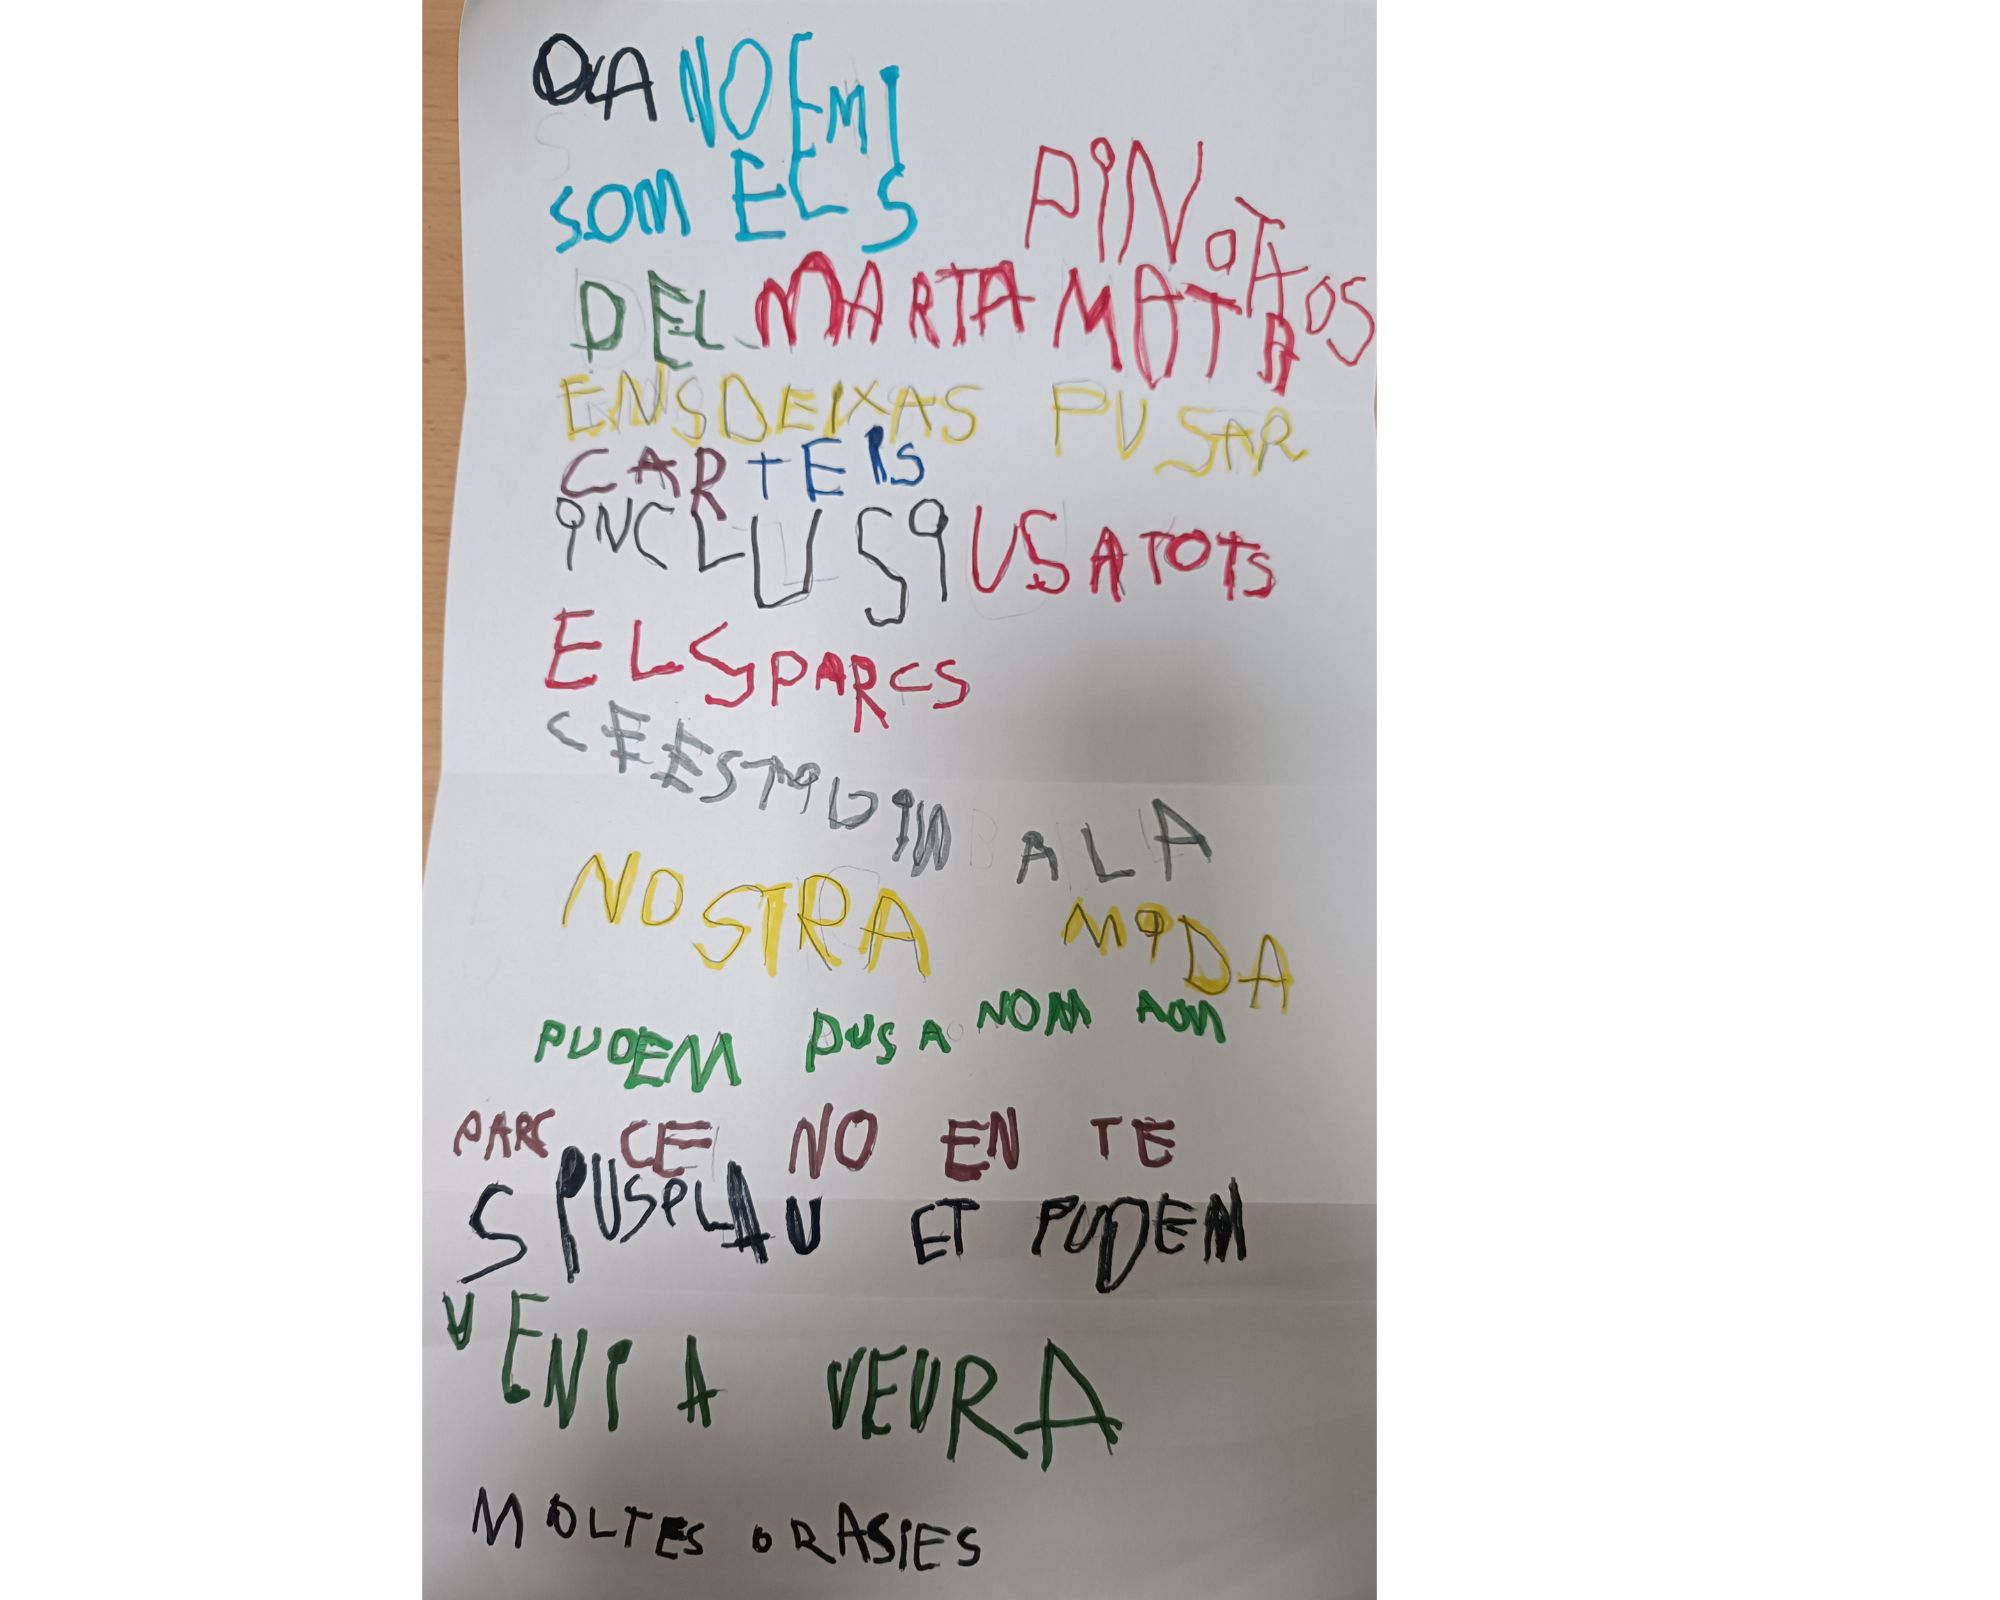 OLA NOEMI
SOM ELS PINOTAOS
DEL MARTA MATA
ENS DEIXAS PUSAR
CARTERS
INCLUSIUS A TOTS
ELS PARCS
CE ESTIGUIN A LA
NOSTRA MIDA
PUDEM PUSA NOM AON
PARC CE NO EN TE
SPUSPLAU ET PUDEM
VENI A VEURA
MOLTES GRASIES